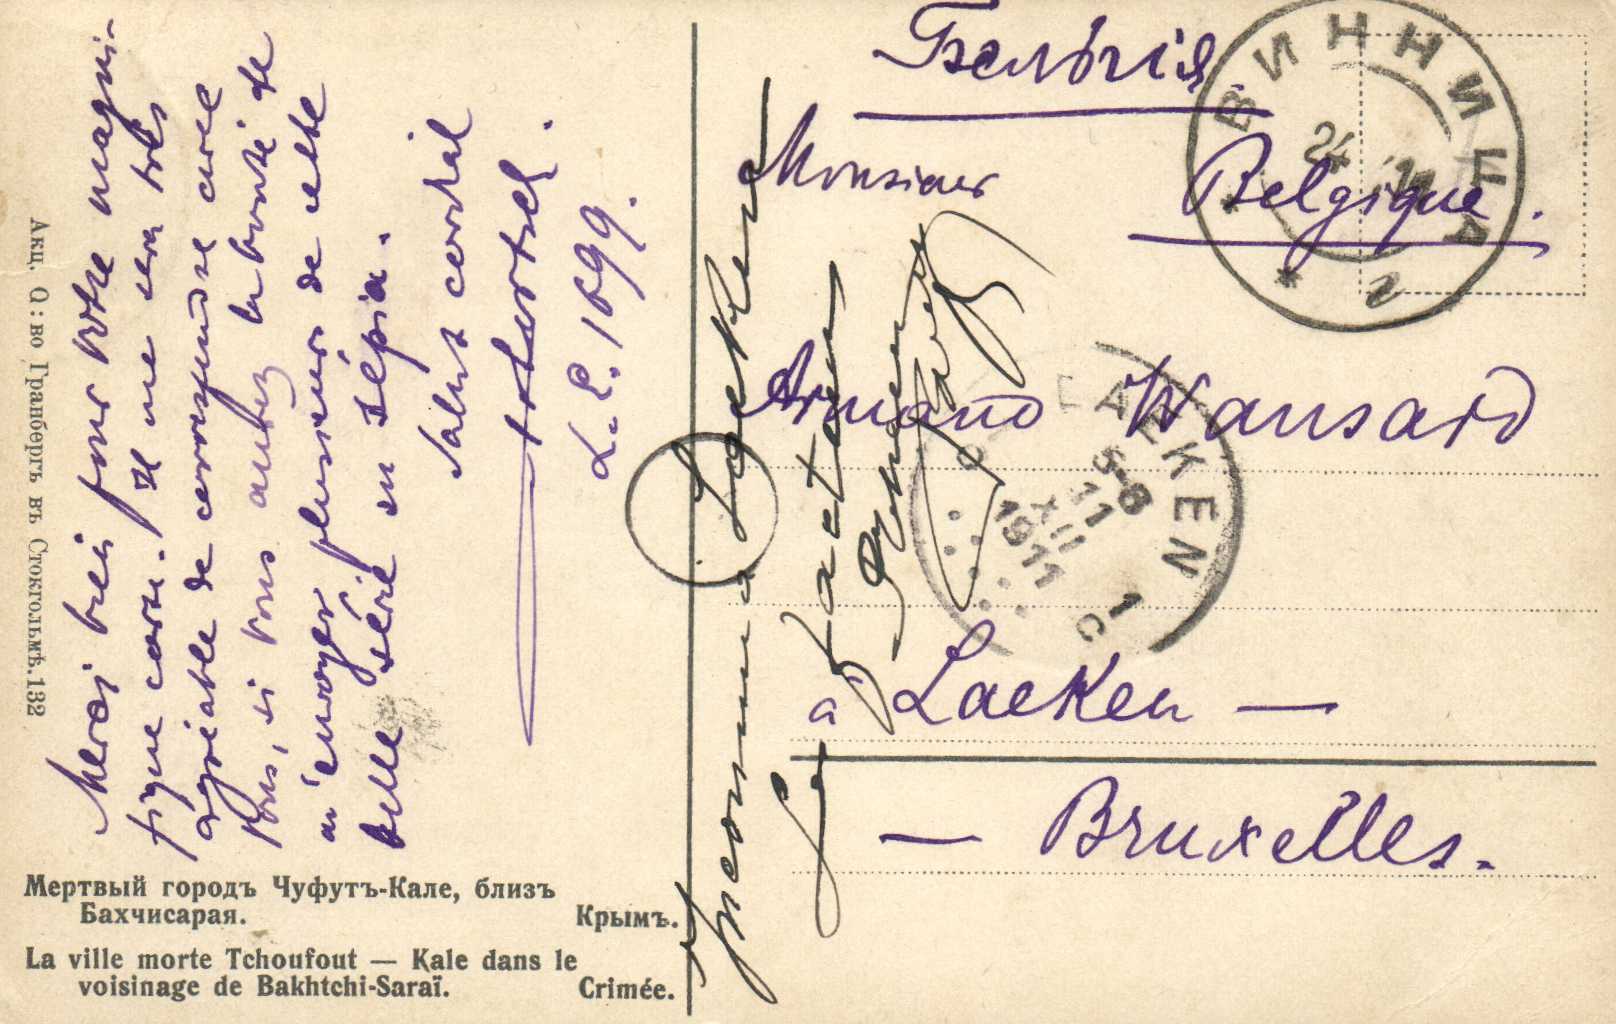 Merci bien pour votre magni-
fique carte. Il me sera très
agréable de correspondre avec
vous, si vous aurez la bonté de
m'envoyer plusieurs de cette
belle série en sépia.
Salut cordial
L.E. 1699.
Акц. О: во Гранбергъ въ Стокгольмѣ. 132
Мертвый городъ Чуфутъ-Кале, близъ
Бахчисарая. Крымъ.
La ville morte Tchoufout — Kale dans le
voisinage de Bakhtchi-Saraï. Crimée.
Бельгія
Belgique.
Monsieur
Armand Wansard
à Laeken —
— Bruxelles.
Inconnu à Laeken
Le facteur
ВИННИЦА
24
LAEKEN
5-6
11
XII
1911
1 C